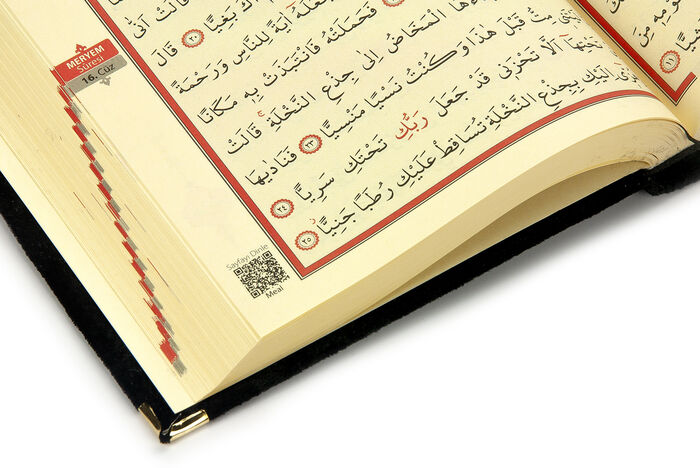 MERYEM
Sûresi
16. Cüz
قَالَتْ اَنّٰى
بَغِيًّا ٢٠ قَالَ
اٰيَةً لِلنَّاسِ وَرَحْمَةً
فَحَمَلَتْهُ فَانْتَبَذَتْ بِه۪ مَكَانًا
الْمَخَاضُ اِلٰى جِذْعِ النَّخْلَةِۚ قَالَتْ
مِتُّ قَبْلَ هٰذَا وَكُنْتُ نَسْيًا مَنْسِيًّا ٢٣ فَنَادٰيهَا
تَحْتِهَٓا اَلَّا تَحْزَن۪ي قَدْ جَعَلَ رَبُّكِ تَحْتَكِ سَرِيًّا ٢٤
اِلَيْكِ بِجِذْعِ النَّخْلَةِ تُسَاقِطْ عَلَيْكِ رُطَبًا جَنِيًّاۘ ٢٥
Sayfayı Dinle
Meal
١١